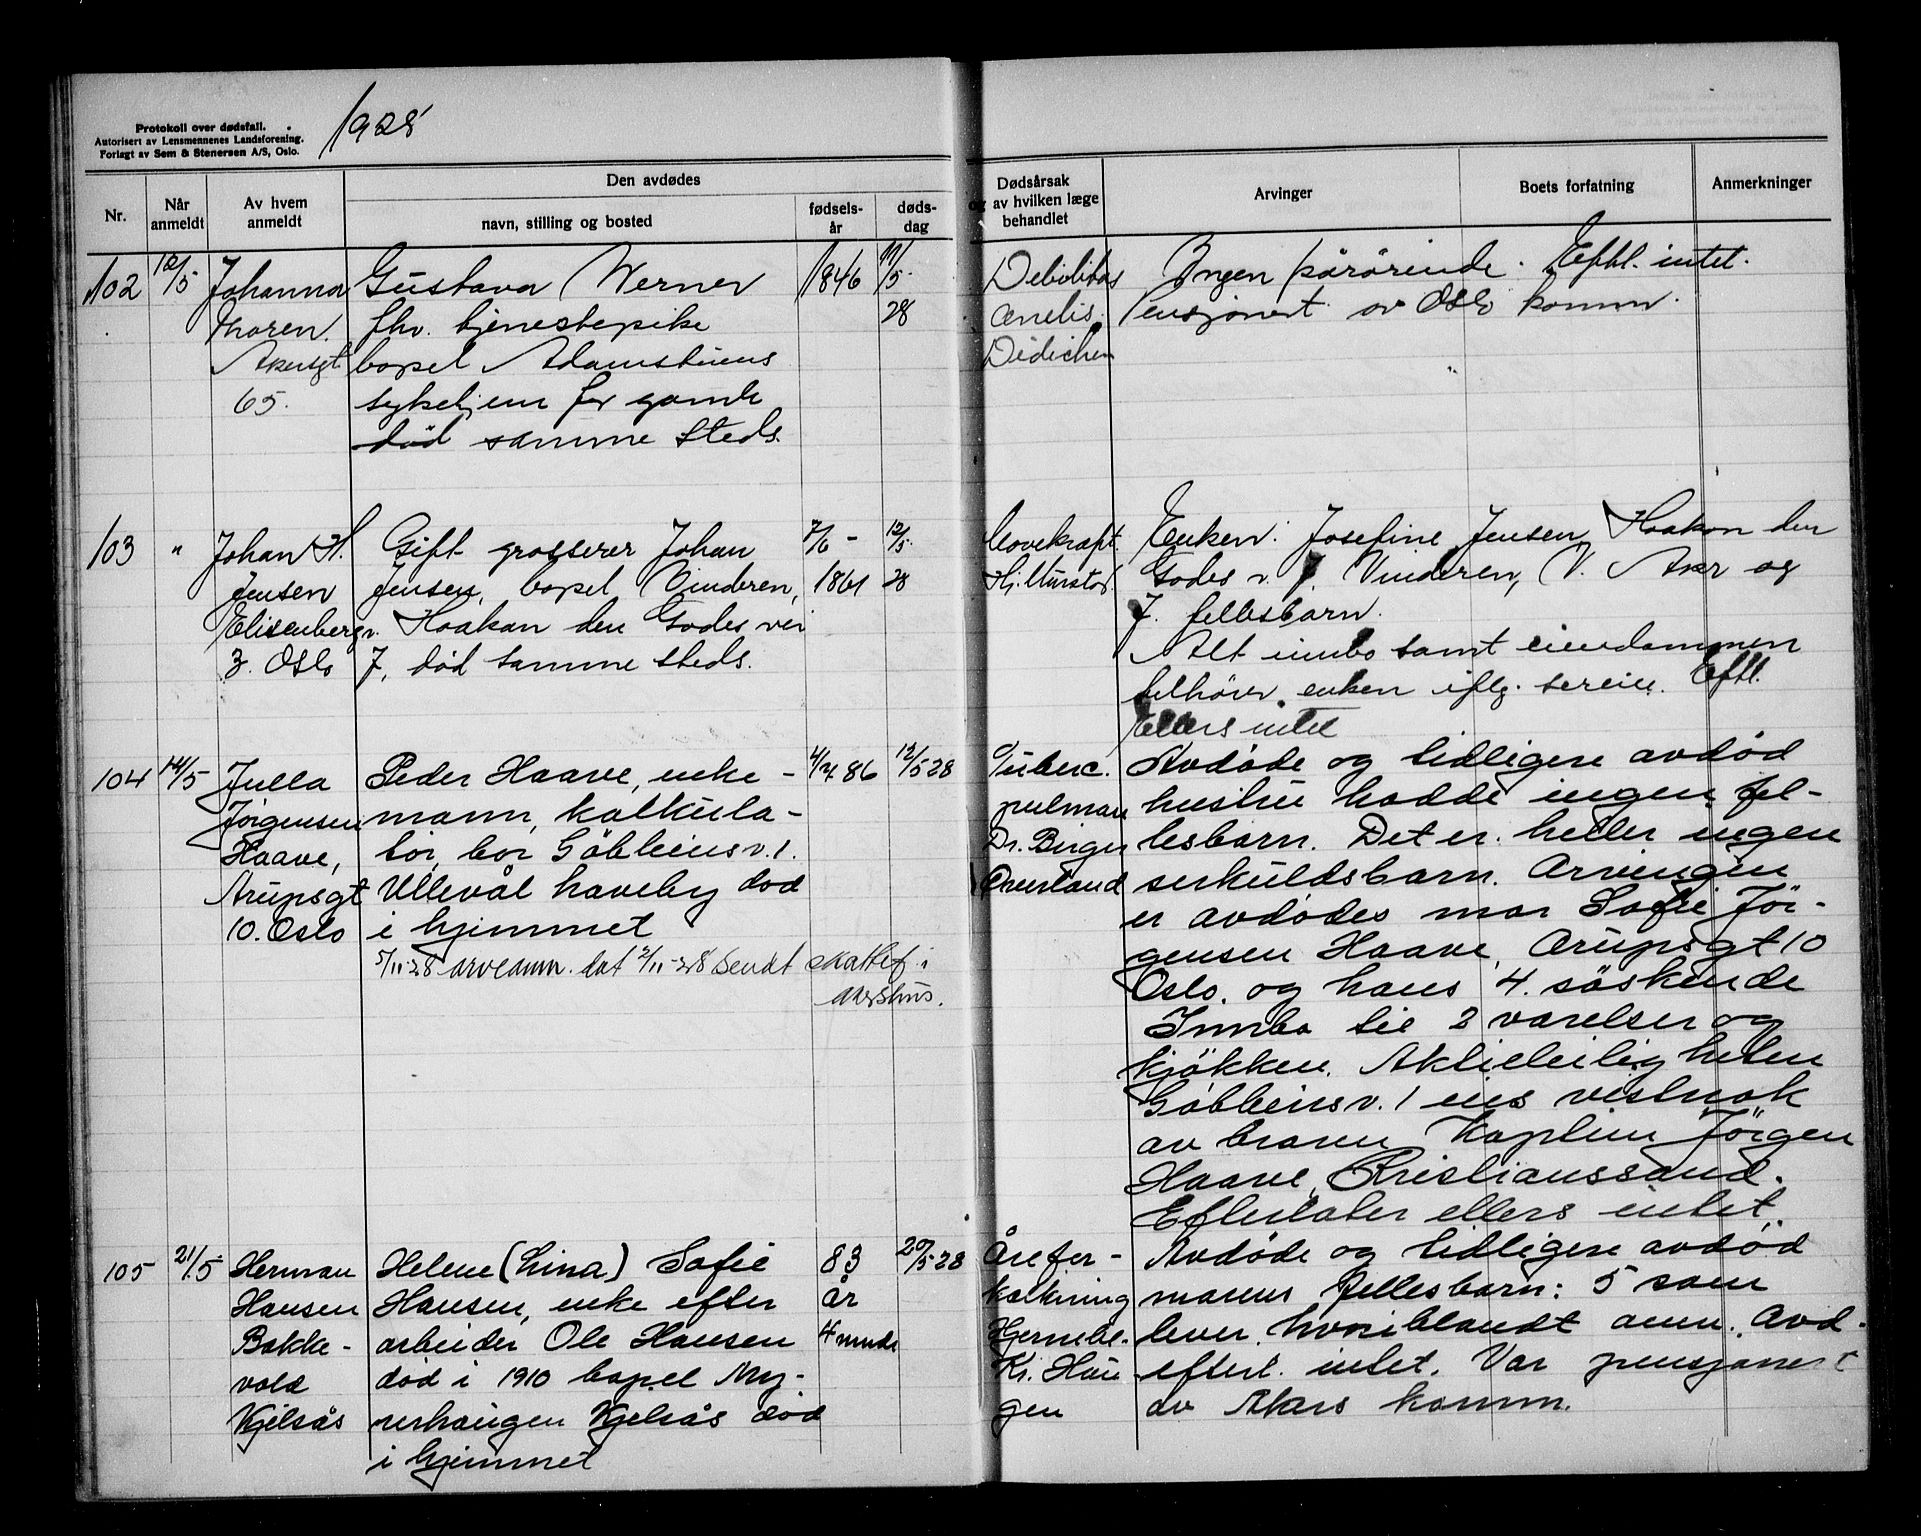 Protokoll over dødsfall.
Autorisert av Lensmennenes Landsforening.
Forlagt av Sem & Stenersen A/S, Oslo.
1928
Nr.
Når anmeldt
Av hvem anmeldt
Den avdødes
navn, stilling og bosted
fødsels-år
døds-dag
Dødsårsak
og av hvilken læge
behandlet
Arvinger
Boets forfatning
Anmerkninger
102
12/5
Johanna
Thoren.
Akersgt
65.
Gustava Werner
fhv. tjenestepike
bopel Adamstuens
sykehjem for gamle
død samme steds.
1846
11/5
28
Debilitas
Dedichen
Ingen pårørende. Eftl. intet.
Pensjonert av Oslo komm.
103
"
Johan H.
Jensen
Elisenbergv.
3. Oslo
Gift grosserer Johan
Jensen, bopel Vinderen,
Haakon den Godes vei
7, død samme steds.
7/6 -
1861
12/5
28
Enken: Josefine Jensen, Haakon den
Godes v. 7, Vinderen, V. Aker og
7. fellesbarn.
Alt innbo samt eiendommen
tilhører enken iflg. Eftl.
Ellers intet
104
14/5
Julla
Jørgensen
Haave,
Arupsgt
10. Oslo
Peder Haave, enke-
mann, kalkula-
tør, bor Gøbleinsv. 1.
Ullevål haveby død
i hjemmet
5/11-28 arveanm. dat 2/11-28 sendt skattef. i
Akershus.
4/7 86
12/5 28
Tuberc.
pulman
Dr. Birger
Overland
Avdøde og tidligere avdød
hustru hadde ingen fel-
lesbarn. Det er heller ingen
serkuldsbarn. Arvingen
er avdødes mor Sofie Jør-
gensen Haave, Arupsgt 10
Oslo. og hans 4. søskende
Innbo til 2 værelser og
kjøkken. Aktieleiligheten
Gøbleinsv. 1 eies vistnok
av broren Kaptein Jørgen
Haave, Kristianssand.
Efterlater ellers intet.
105
21/5
Herman
Hansen
Bakke-
vold
Kjelsås
Helene (Lina) Sofie
Hansen, enke efter
arbeider Ole Hansen
død i 1910 bopel My-
rerhaugen Kjelsås død
i hjemmet
83
år
4 mnds
20/5 28
Årefor-
kalkning
Hjernebl.
Kr. Hau
gen
Avdøde og tidligere avdød
manns fellesbarn: 5 som
lever, hvoriblandt anm. Avd.
efterl. intet. Var pensjonert
av Akers komm.